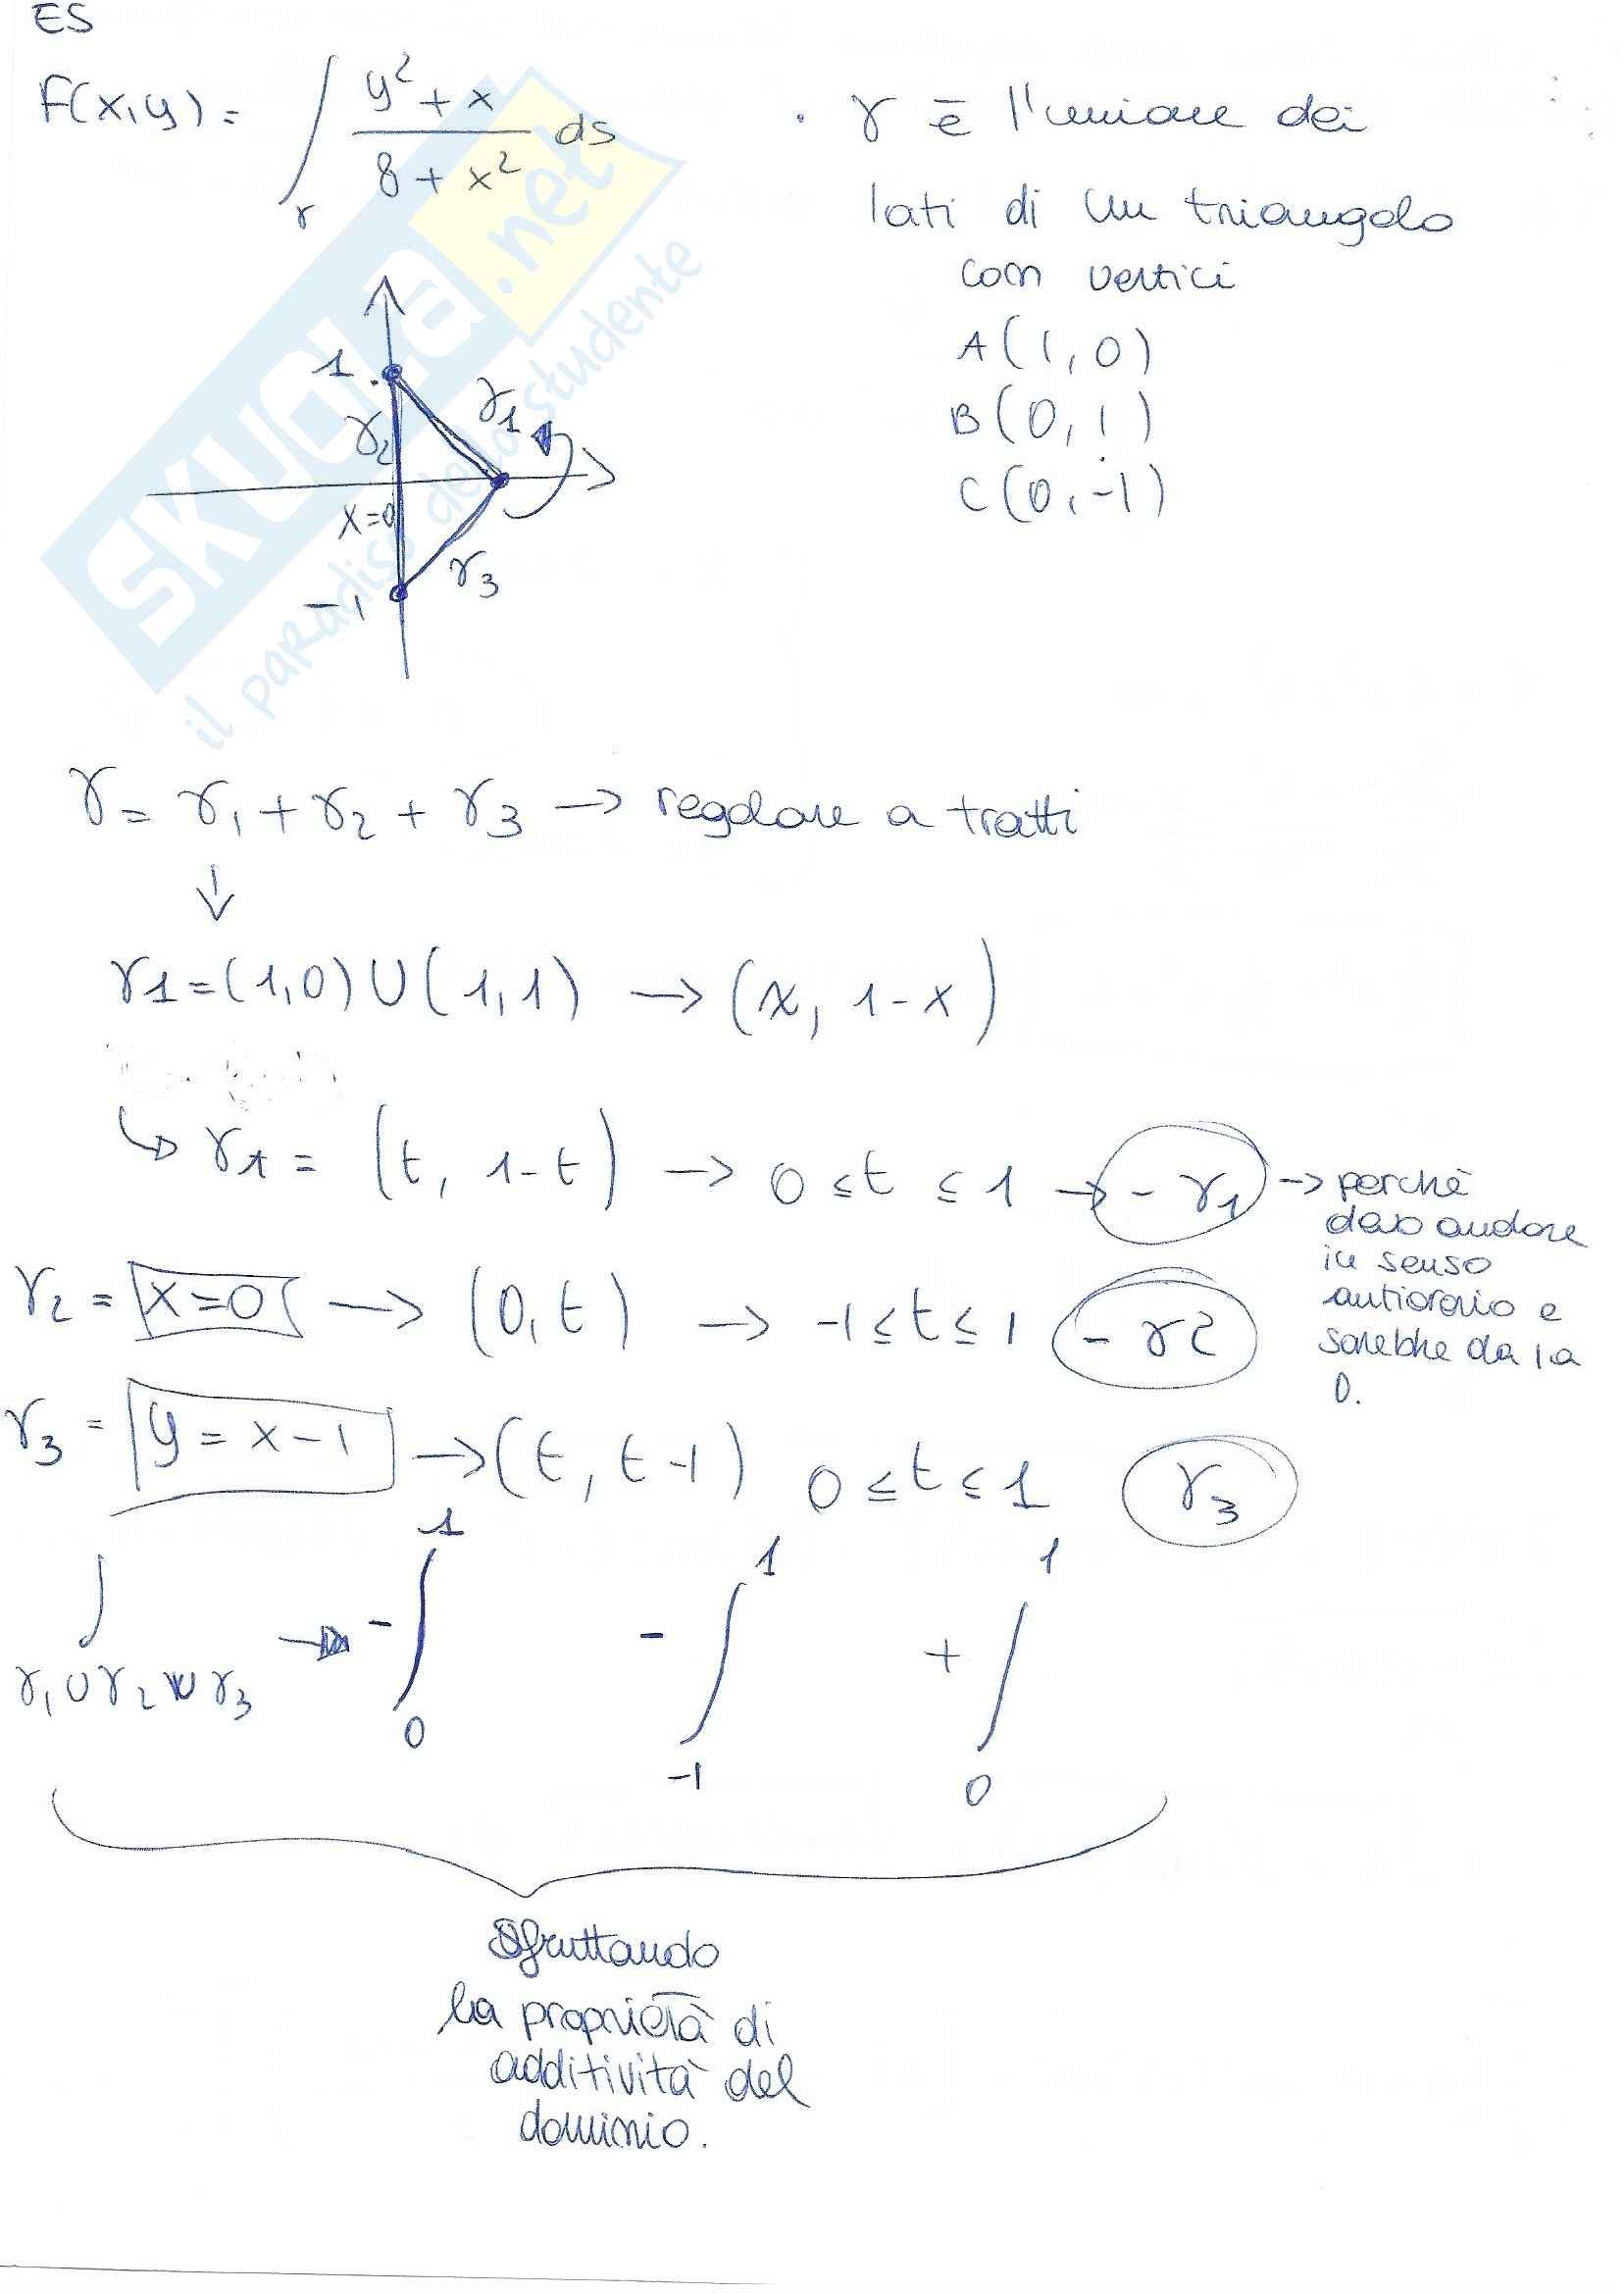 ES
F(x,y) = ∫γ (y² + x)/(8 + x²) ds
· γ è l'unione dei
lati di un triangolo
con vertici
A(1,0)
B(0,1)
C(0,-1)
1
γ2
γ1
x=0
γ3
-1
SKUOLA.net
il paradiso dello studente
γ = γ1 + γ2 + γ3 → regolare a tratti
↓
γ1 = (1,0) ∪ (1,1) → (x, 1-x)
↳ γ1 = (t, 1-t) → 0 ≤ t ≤ 1 → -γ1 → perchè
devo andare
in senso
antiorario e
sarebbe da 1 a
0.
γ2 = x=0 → (0,t) → -1 ≤ t ≤ 1 -γ2
γ3 = y = x-1 → (t, t-1) 0 ≤ t ≤ 1 γ3
∫γ1∪γ2∪γ3 → -∫₀¹ -∫₋₁¹ +∫₀¹
Sfruttando
la proprietà di
additività del
dominio.